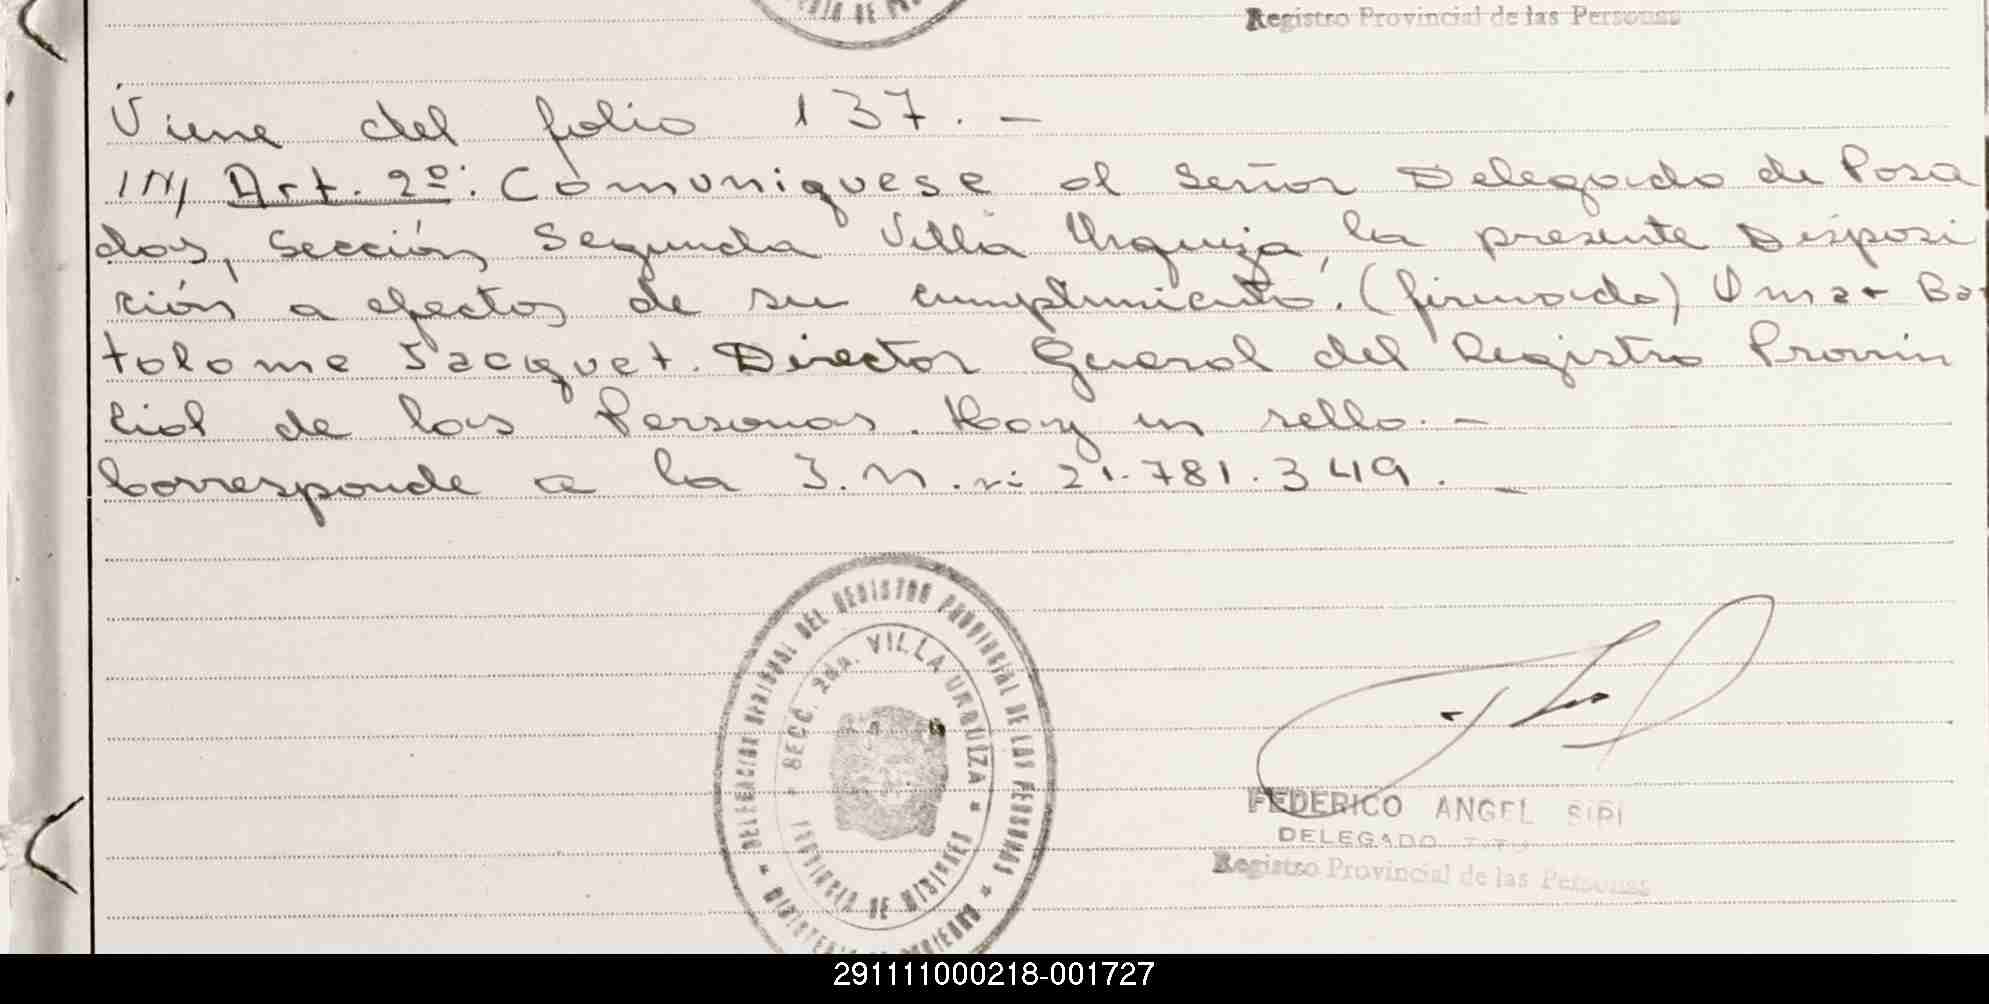 Registro Provincial de las Personas
Viene del folio 137.-
Art. 2º: Comuniquese al Señor Delegado de Posa
das, Sección Segunda Villa Urquiza, la presente Disposi
ción a efectos de su cumplimiento. (firmado) Omar Bar
tolome Jacquet. Director General del Registro Provin
cial de las Personas. Hay un sello.-
Corresponde a la I.N. nº 21.781.349.-
DELEGACION SECCIONAL DEL REGISTRO PROVINCIAL DE LAS PERSONAS * MINISTERIO DE GOBIERNO *
SECC. 2da. VILLA URQUIZA * PROVINCIA DE MISIONES *
FEDERICO ANGEL SIRI
DELEGADO
Registro Provincial de las Personas
291111000218-001727